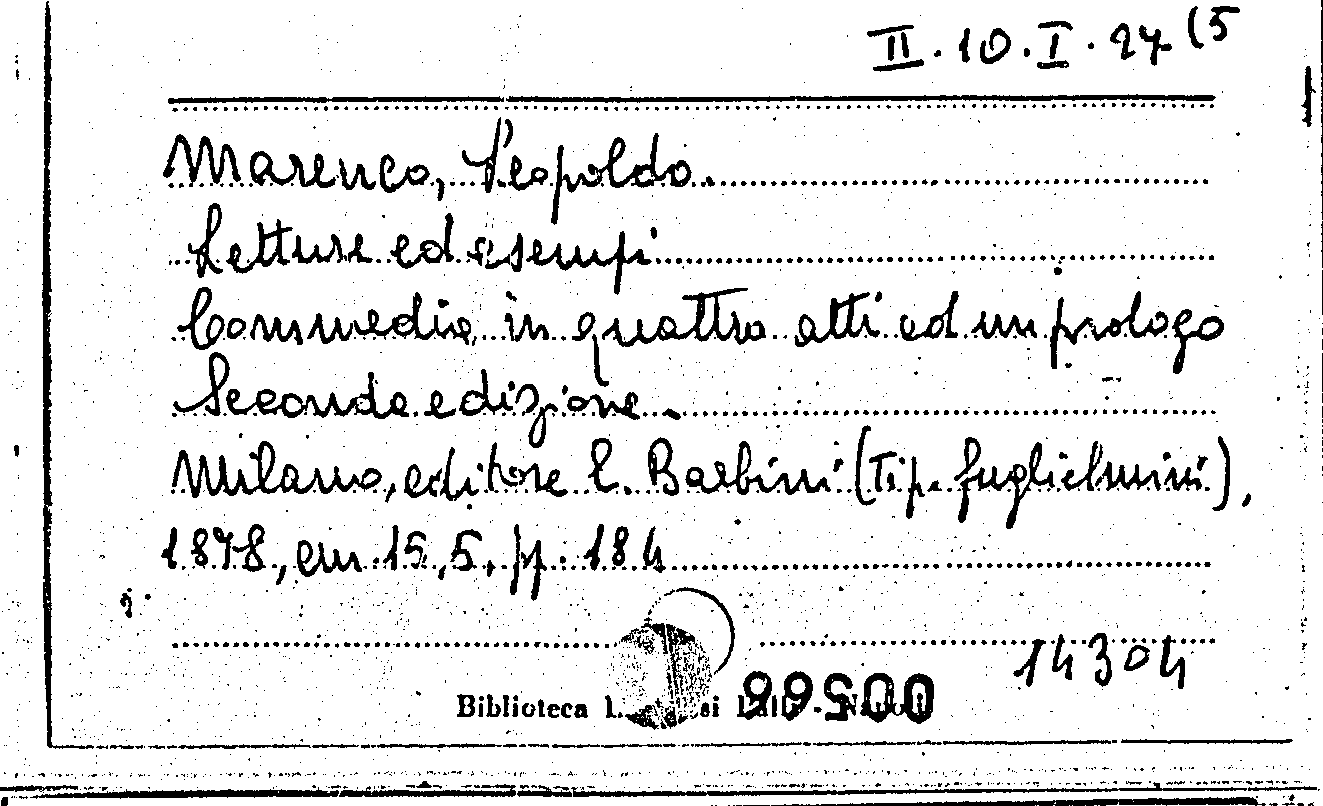 II.10.I.27(5
Marenco, Leopoldo.
Letture ed esempi
Commedia in quattro atti ed un prologo
Seconda edizione.
Milano, editore C. Barbini (Tip. Guglielmini),
1878, cm. 15,5, pp. 184
14304
Biblioteca